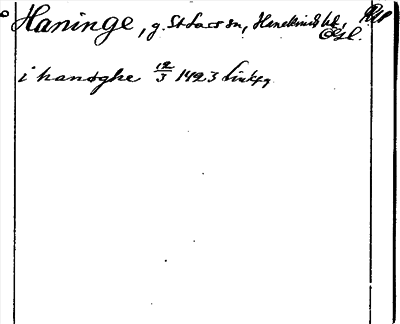 Haninge, g. St Lars sn, Hanekinds hd,
Ögl.
i hanøghe 12/3 1423 Linkpg